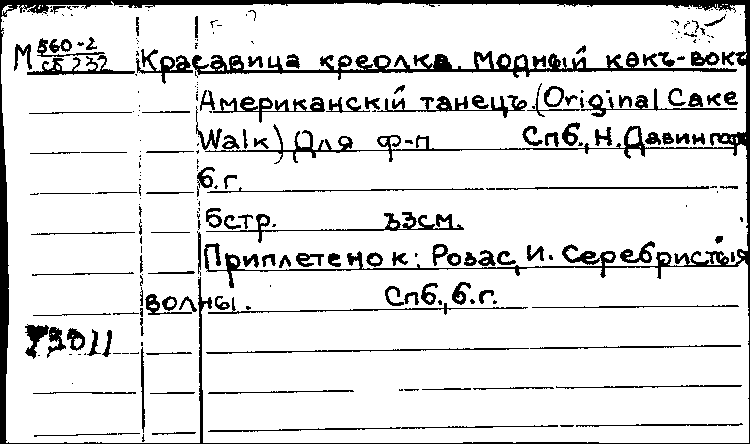 М 560-2
сб 232
Красавица креолка. Модный кэкъ-вокъ
Американскій танецъ. (Original Cake
Walk) Для ф-п Спб., Н. Давингоф
б.г.
5стр. 33см.
Приплетено к: Розас, И. Серебристыя
волны. Спб., б.г.